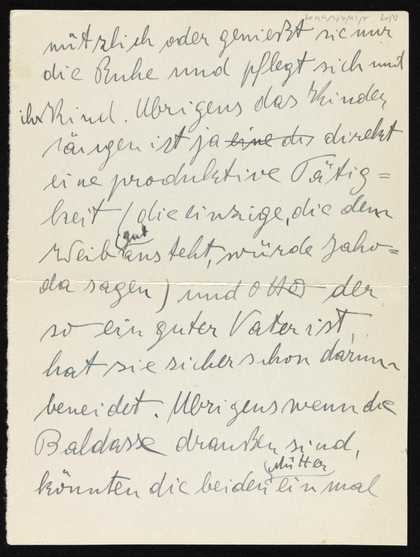 nützlich oder genießt sie nur
die Ruhe und pflegt sich und
ihr Kind. Übrigens das Kinder
säugen ist ja eine des direkt
eine produktive Tätig=
keit (die einzige, die dem
Weib gut ansteht, würde Jaho=
da sagen) und OTTO der
so ein guter Vater ist,
hat sie sicher schon darum
beneidet. Übrigens wenn die
Baldasse draußen sind,
könnten die beiden Mütter einmal